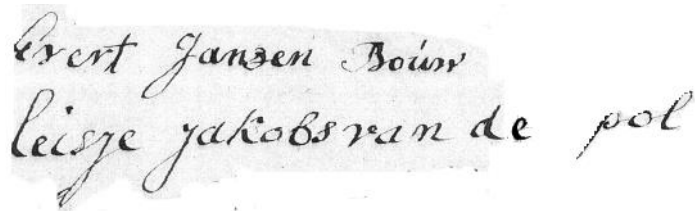 Evert Jansen Bouw
leisje jakobs van de pol